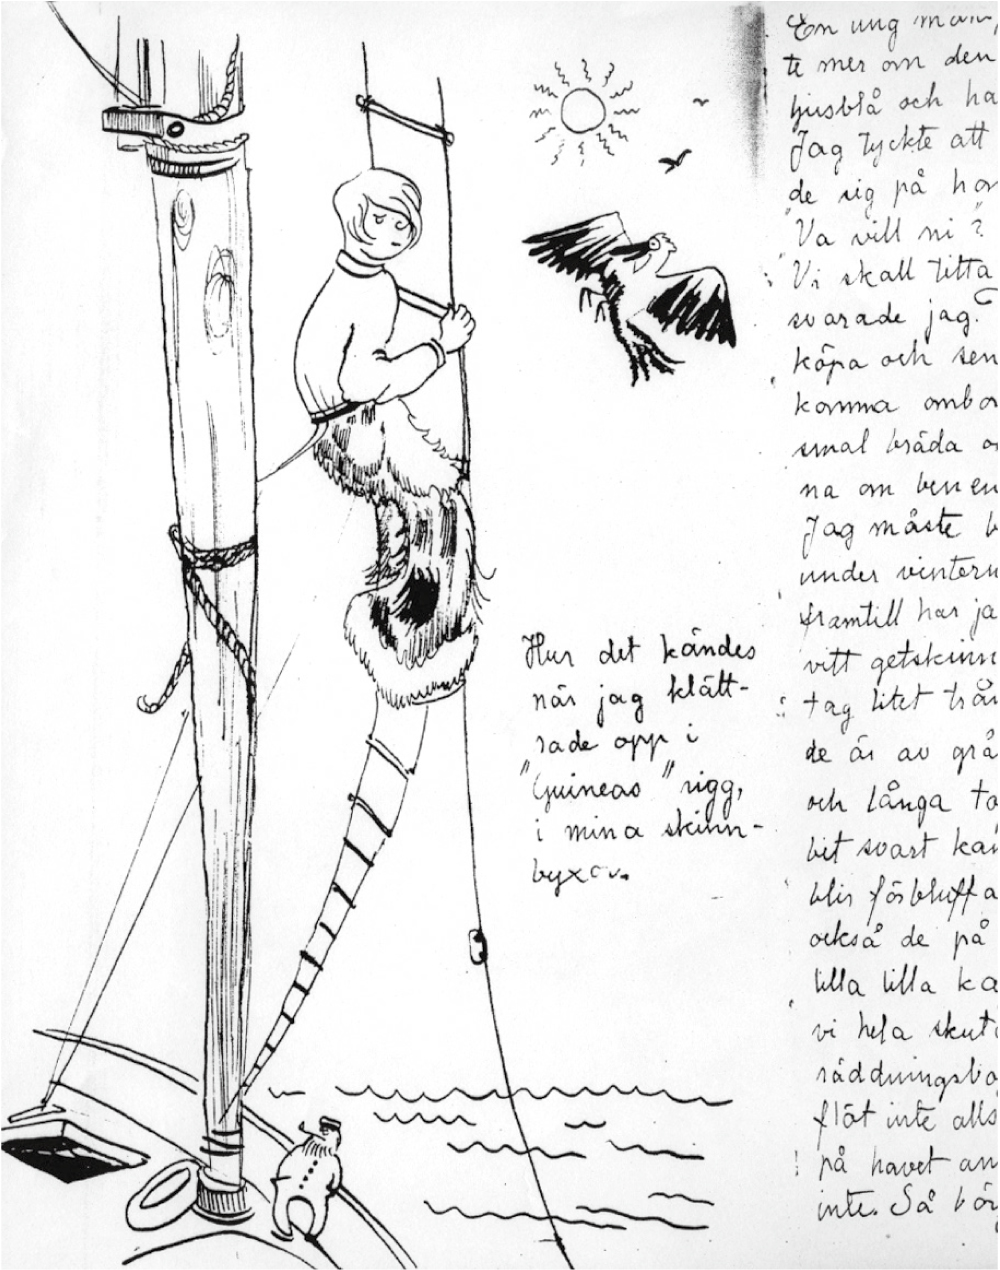 Hur det kändes
när jag klätt-
rade opp i
"Guineas" rigg,
i mina skinn-
byxor.
En ung man,
te mer om den
ljusblå och ha
Jag tyckte att
de sig på hon
"Va vill ni?
"Vi skall titta
svarade jag.
köpa och sen
komma ombor
smal bräda o
na om benen
Jag måste b
under vintern
framtill har ja
vitt getskinn
tag litet trån
de är av grå
och långa ta
bit svart kan
blir förbluffa
också de på
lilla lilla ka
vi hela skut
räddningsbo
flöt inte alls
på havet an
inte. Så bör